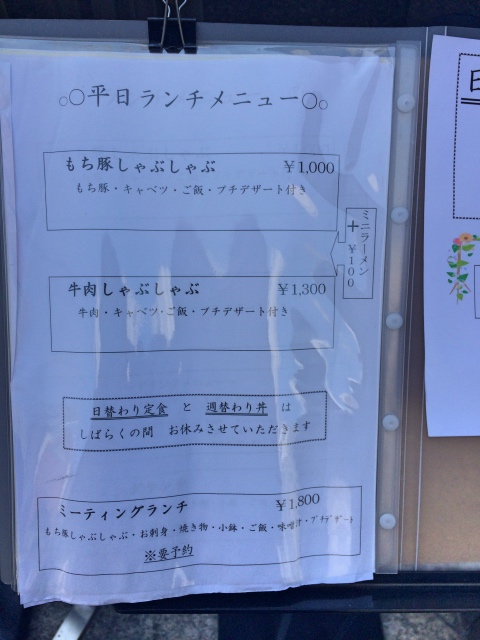 ○○平日ランチメニュー○○
もち豚しゃぶしゃぶ ￥1,000
もち豚・キャベツ・ご飯・プチデザート付き
ミニラーメン
＋￥100
牛肉しゃぶしゃぶ ￥1,300
牛肉・キャベツ・ご飯・プチデザート付き
日替わり定食 と 週替わり丼 は
しばらくの間 お休みさせていただきます
ミーティングランチ ￥1,800
もち豚しゃぶしゃぶ・お刺身・焼き物・小鉢・ご飯・味噌汁・プチデザート
※要予約